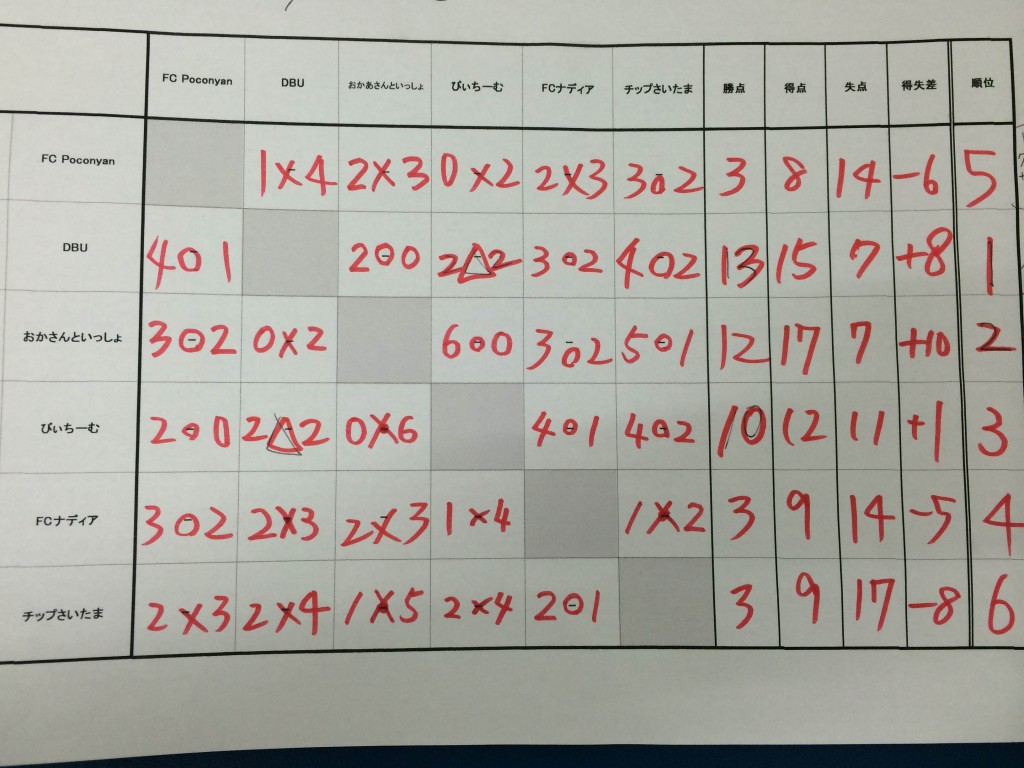 FC Poconyan DBU おかあさんといっしょ びぃちーむ FCナディア チップさいたま 勝点 得点 失点 得失差 順位
FC Poconyan 1×4 2×3 0×2 2×3 3○2 3 8 14 -6 5
DBU 4○1 2○0 2△2 3○2 4○2 13 15 7 +8 1
おかさんといっしょ 3○2 0×2 6○0 3○2 5○1 12 17 7 +10 2
びぃちーむ 2○0 2△2 0×6 4○1 4○2 10 12 11 +1 3
FCナディア 3○2 2×3 2×3 1×4 1×2 3 9 14 -5 4
チップさいたま 2×3 2×4 1×5 2×4 2○1 3 9 17 -8 6